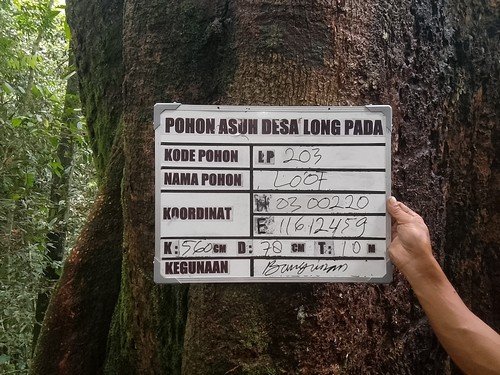 POHON ASUH DESA LONG PADA
KODE POHON LP 203
NAMA POHON LOOF
KOORDINAT N 03 00220
E 11612459
K: 560 CM D: 70 CM T: 10 M
KEGUNAAN Bangunan